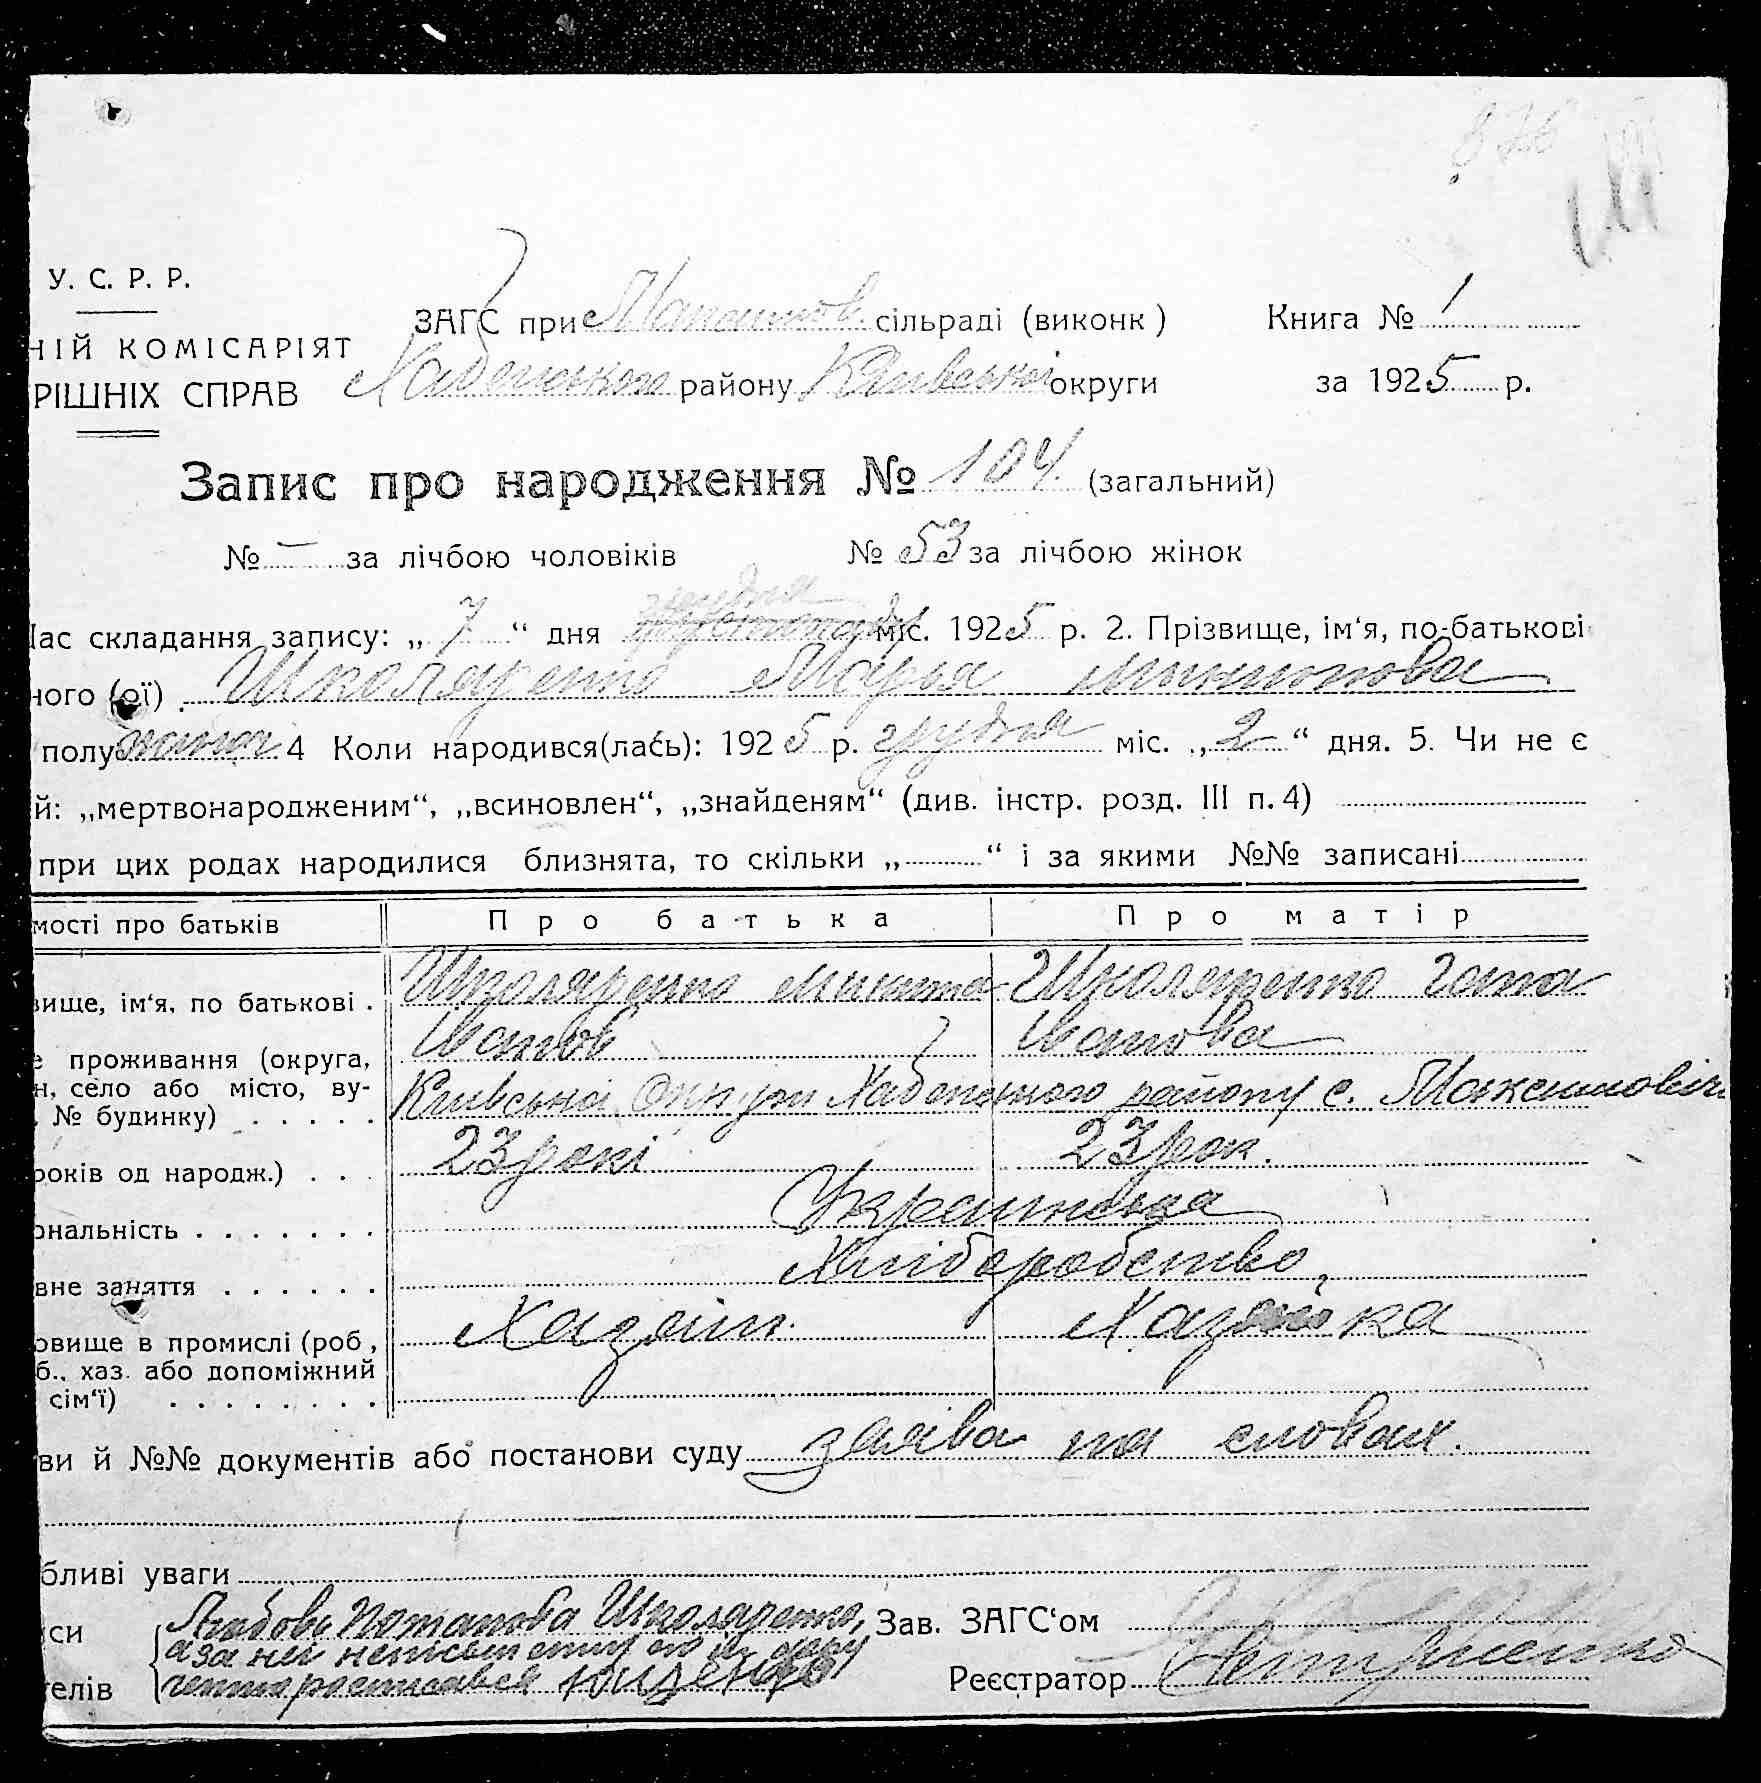 У. С. Р. Р.
ЗАГС при Максимов. сільраді (виконк) Книга № 1
НІЙ КОМІСАРІЯТ
РІШНІХ СПРАВ
Хабенського району Київської округи за 1925 р.
Запис про народження № 104 (загальний)
№ — за лічбою чоловіків № 53 за лічбою жінок
грудня
Час складання запису: „ 7 “ дня міс. 1925 р. 2. Прізвище, ім‘я, по-батькові
ного (ої) Школяренко Марья Микитова
полу жіноч 4 Коли народився(лась): 1925 р. грудня міс. „ 2 “ дня. 5. Чи не є
й: „мертвонародженим“, „всиновлен“, „знайденям“ (див. інстр. розд. III п. 4)
при цих родах народилися близнята, то скільки „ “ і за якими №№ записані
мості про батьків Про батька Про матір
вище, ім‘я, по батькові . Школяренко Микита Школяренко Гапа
Іванов Іванова
е проживання (округа,
н, село або місто, ву-
. № будинку) . . . . . Київської Округи Хабенського району с. Максимовічі
років од народж.) . . . 23 рокі 23 рок.
ональність . . . . . . . Українська
вне заняття . . . . . . Хліборобство
овище в промислі (роб, Хазяін. Хазяйка
б., хаз. або допоміжний
сім‘ї) . . . . . . . .
ви й №№ документів або постанови суду заява на словах.
бливі уваги
си Любовь Потапова Школяренко, Зав. ЗАГС‘ом
а за неї неписьменну по її
телів росписався Реєстратор